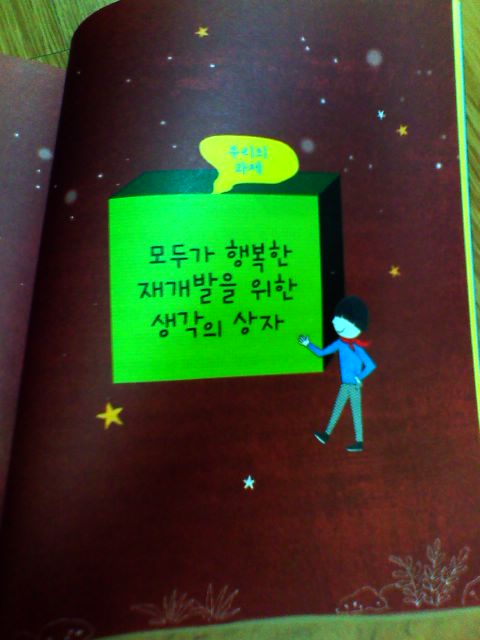 우리의
과제
모두가 행복한
재개발을 위한
생각의 상자